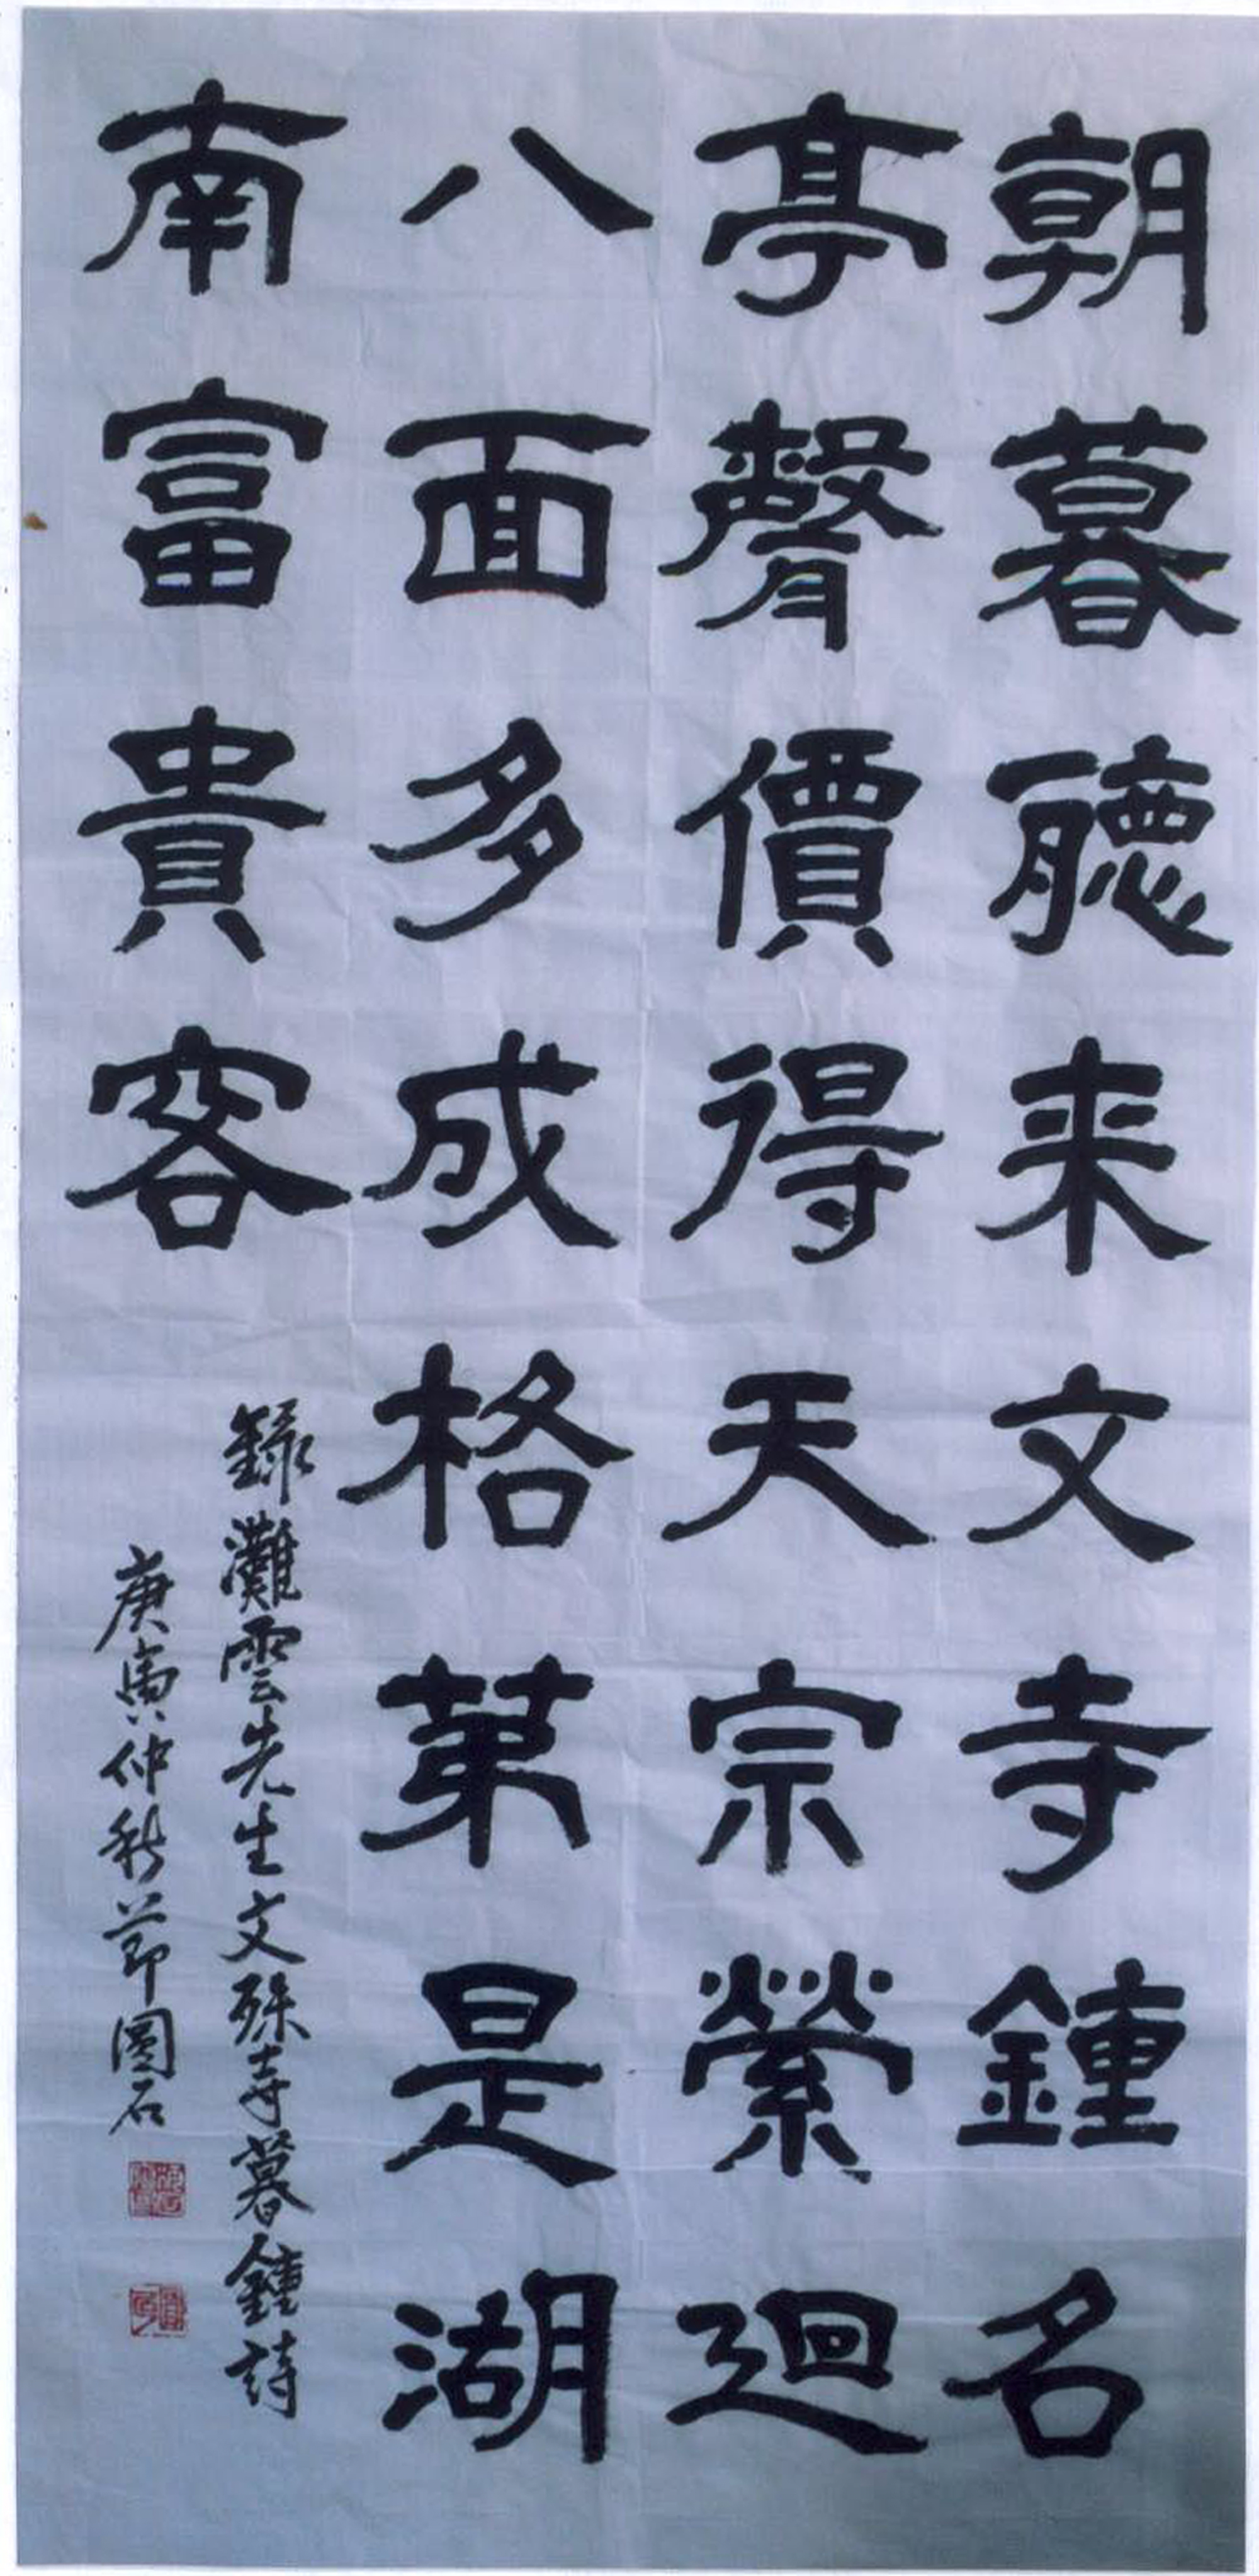 朝暮聽来文寺鍾名
亭聲價得天宗縈迴
八面多成格苐是湖
南富貴容
錄灘雲先生文殊寺暮鍾詩
庚寅仲秋節圓石